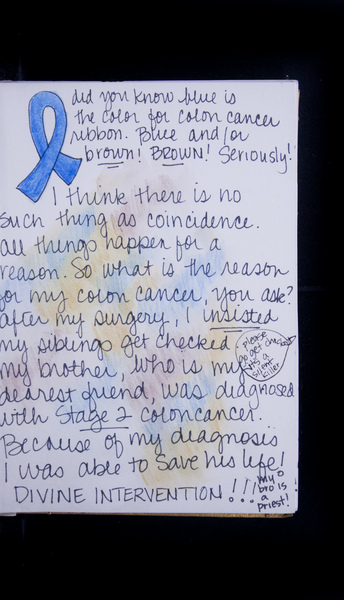 did you know blue is
the color for colon cancer
ribbon. Blue and/or
brown! BROWN! Seriously!
I think there is no
such thing as coincidence.
all things happen for a
reason. So what is the reason
for my colon cancer, you ask?
after my surgery, I insisted
my siblings get checked
please
go get checked
it's a
silent
killer
my brother, who is my
dearest friend, was diagnosed
with Stage 2 colon cancer.
Because of my diagnosis
I was able to save his life!
DIVINE INTERVENTION!!!!
my
bro is
a
priest!